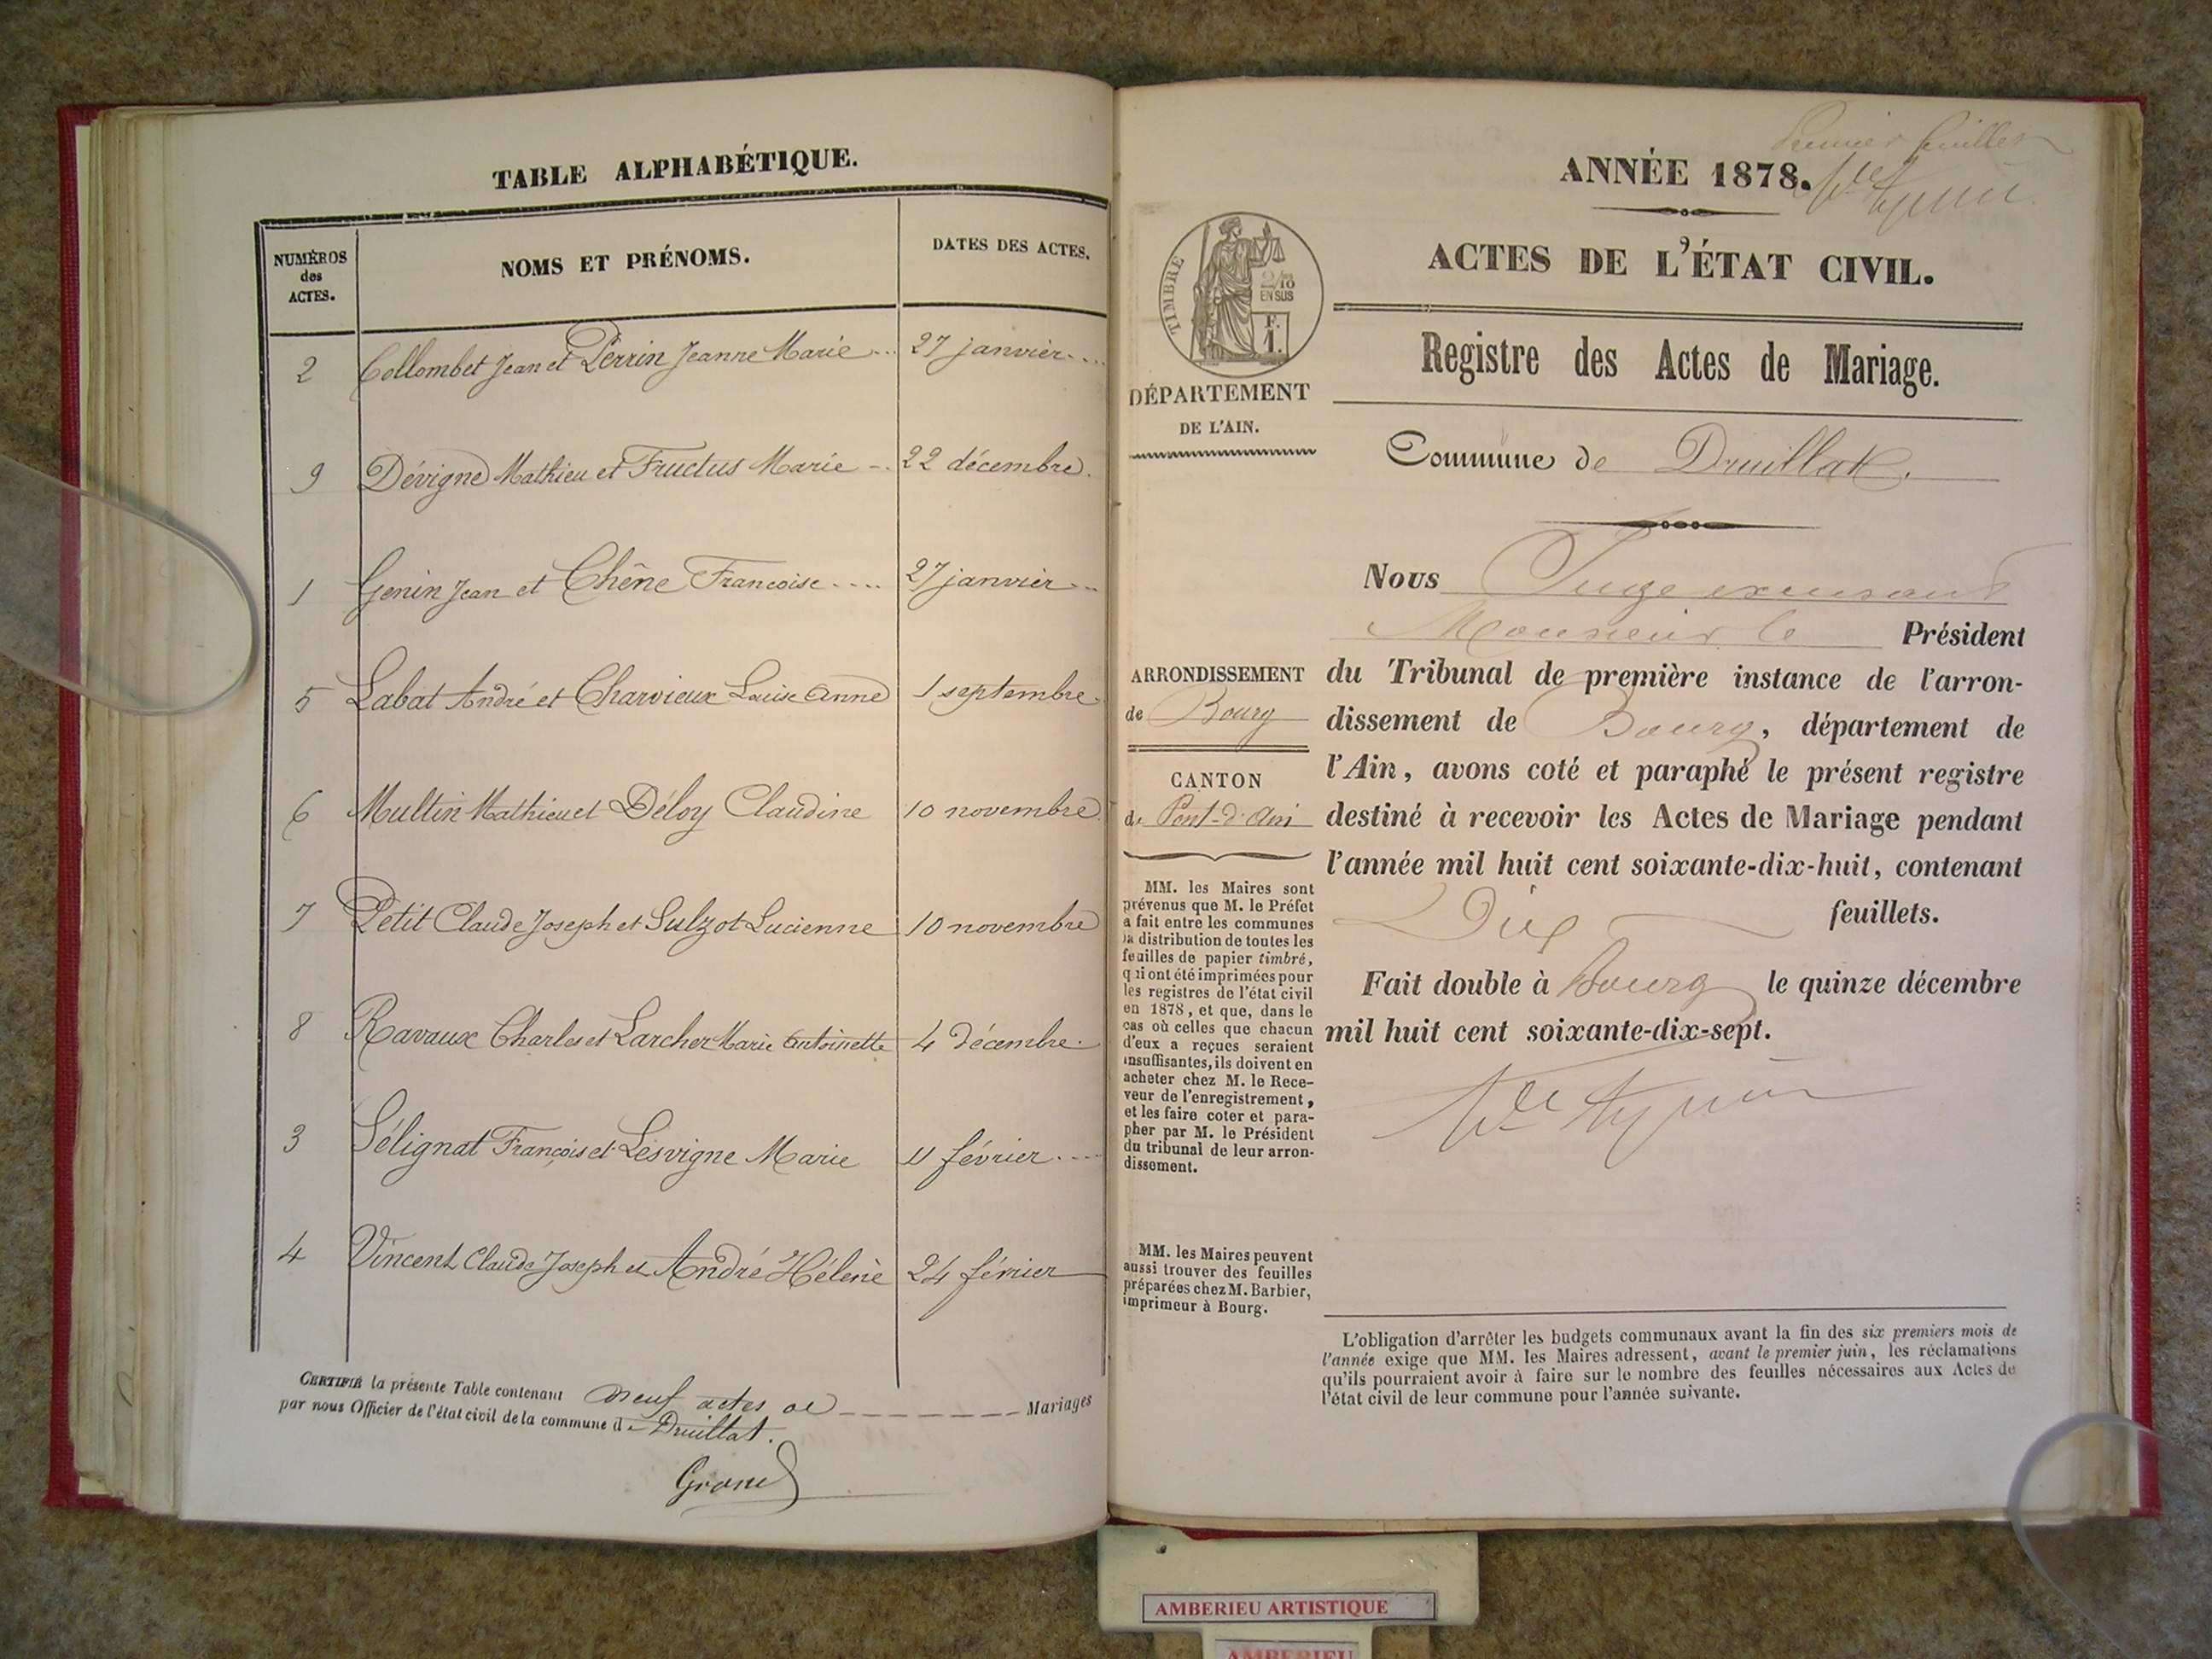 TABLE ALPHABÉTIQUE.
NUMÉROS des ACTES. NOMS ET PRÉNOMS. DATES DES ACTES.
2 Collombet Jean et Perrin Jeanne Marie 27 janvier
9 Dévigne Mathieu et Fructus Marie 22 décembre
1 Genin Jean et Chêne Francoise 27 janvier
5 Labat André et Charvieux Louise Anne 1 septembre
6 Multin Mathieu et Déloy Claudine 10 novembre
7 Petit Claude Joseph et Sulzot Lucienne 10 novembre
8 Ravaux Charles et Larcher Marie Antoinette 4 décembre
3 Sélignat François et Lesvigne Marie 11 février
4 Vincent Claude Joseph et André Hélène 24 février
CERTIFIÉ la présente Table contenant neuf actes de Mariages
par nous Officier de l'état civil de la commune de Druillat.
Grand
Premier feuillet
ANNÉE 1878.
ACTES DE L'ÉTAT CIVIL.
Registre des Actes de Mariage.
Commune de Druillat.
TIMBRE
2/10
EN SUS
F.
1.
DÉPARTEMENT
DE L'AIN.
ARRONDISSEMENT
de Bourg
CANTON
de Pont-d'Ain
MM. les Maires sont
prévenus que M. le Préfet
a fait entre les communes
la distribution de toutes les
feuilles de papier timbré,
qui ont été imprimées pour
les registres de l'état civil
en 1878, et que, dans le
cas où celles que chacun
d'eux a reçues seraient
insuffisantes, ils doivent en
acheter chez M. le Rece-
veur de l'enregistrement,
et les faire coter et para-
pher par M. le Président
du tribunal de leur arron-
dissement.
MM. les Maires peuvent
aussi trouver des feuilles
préparées chez M. Barbier,
imprimeur à Bourg.
Nous Juge excusant
Monsieur le Président
du Tribunal de première instance de l'arron-
dissement de Bourg, département de
l'Ain, avons coté et paraphé le présent registre
destiné à recevoir les Actes de Mariage pendant
l'année mil huit cent soixante-dix-huit, contenant
Dix feuillets.
Fait double à Bourg le quinze décembre
mil huit cent soixante-dix-sept.
L'obligation d'arrêter les budgets communaux avant la fin des six premiers mois de
l'année exige que MM. les Maires adressent, avant le premier juin, les réclamations
qu'ils pourraient avoir à faire sur le nombre des feuilles nécessaires aux Actes de
l'état civil de leur commune pour l'année suivante.
AMBERIEU ARTISTIQUE
AMBERIEU